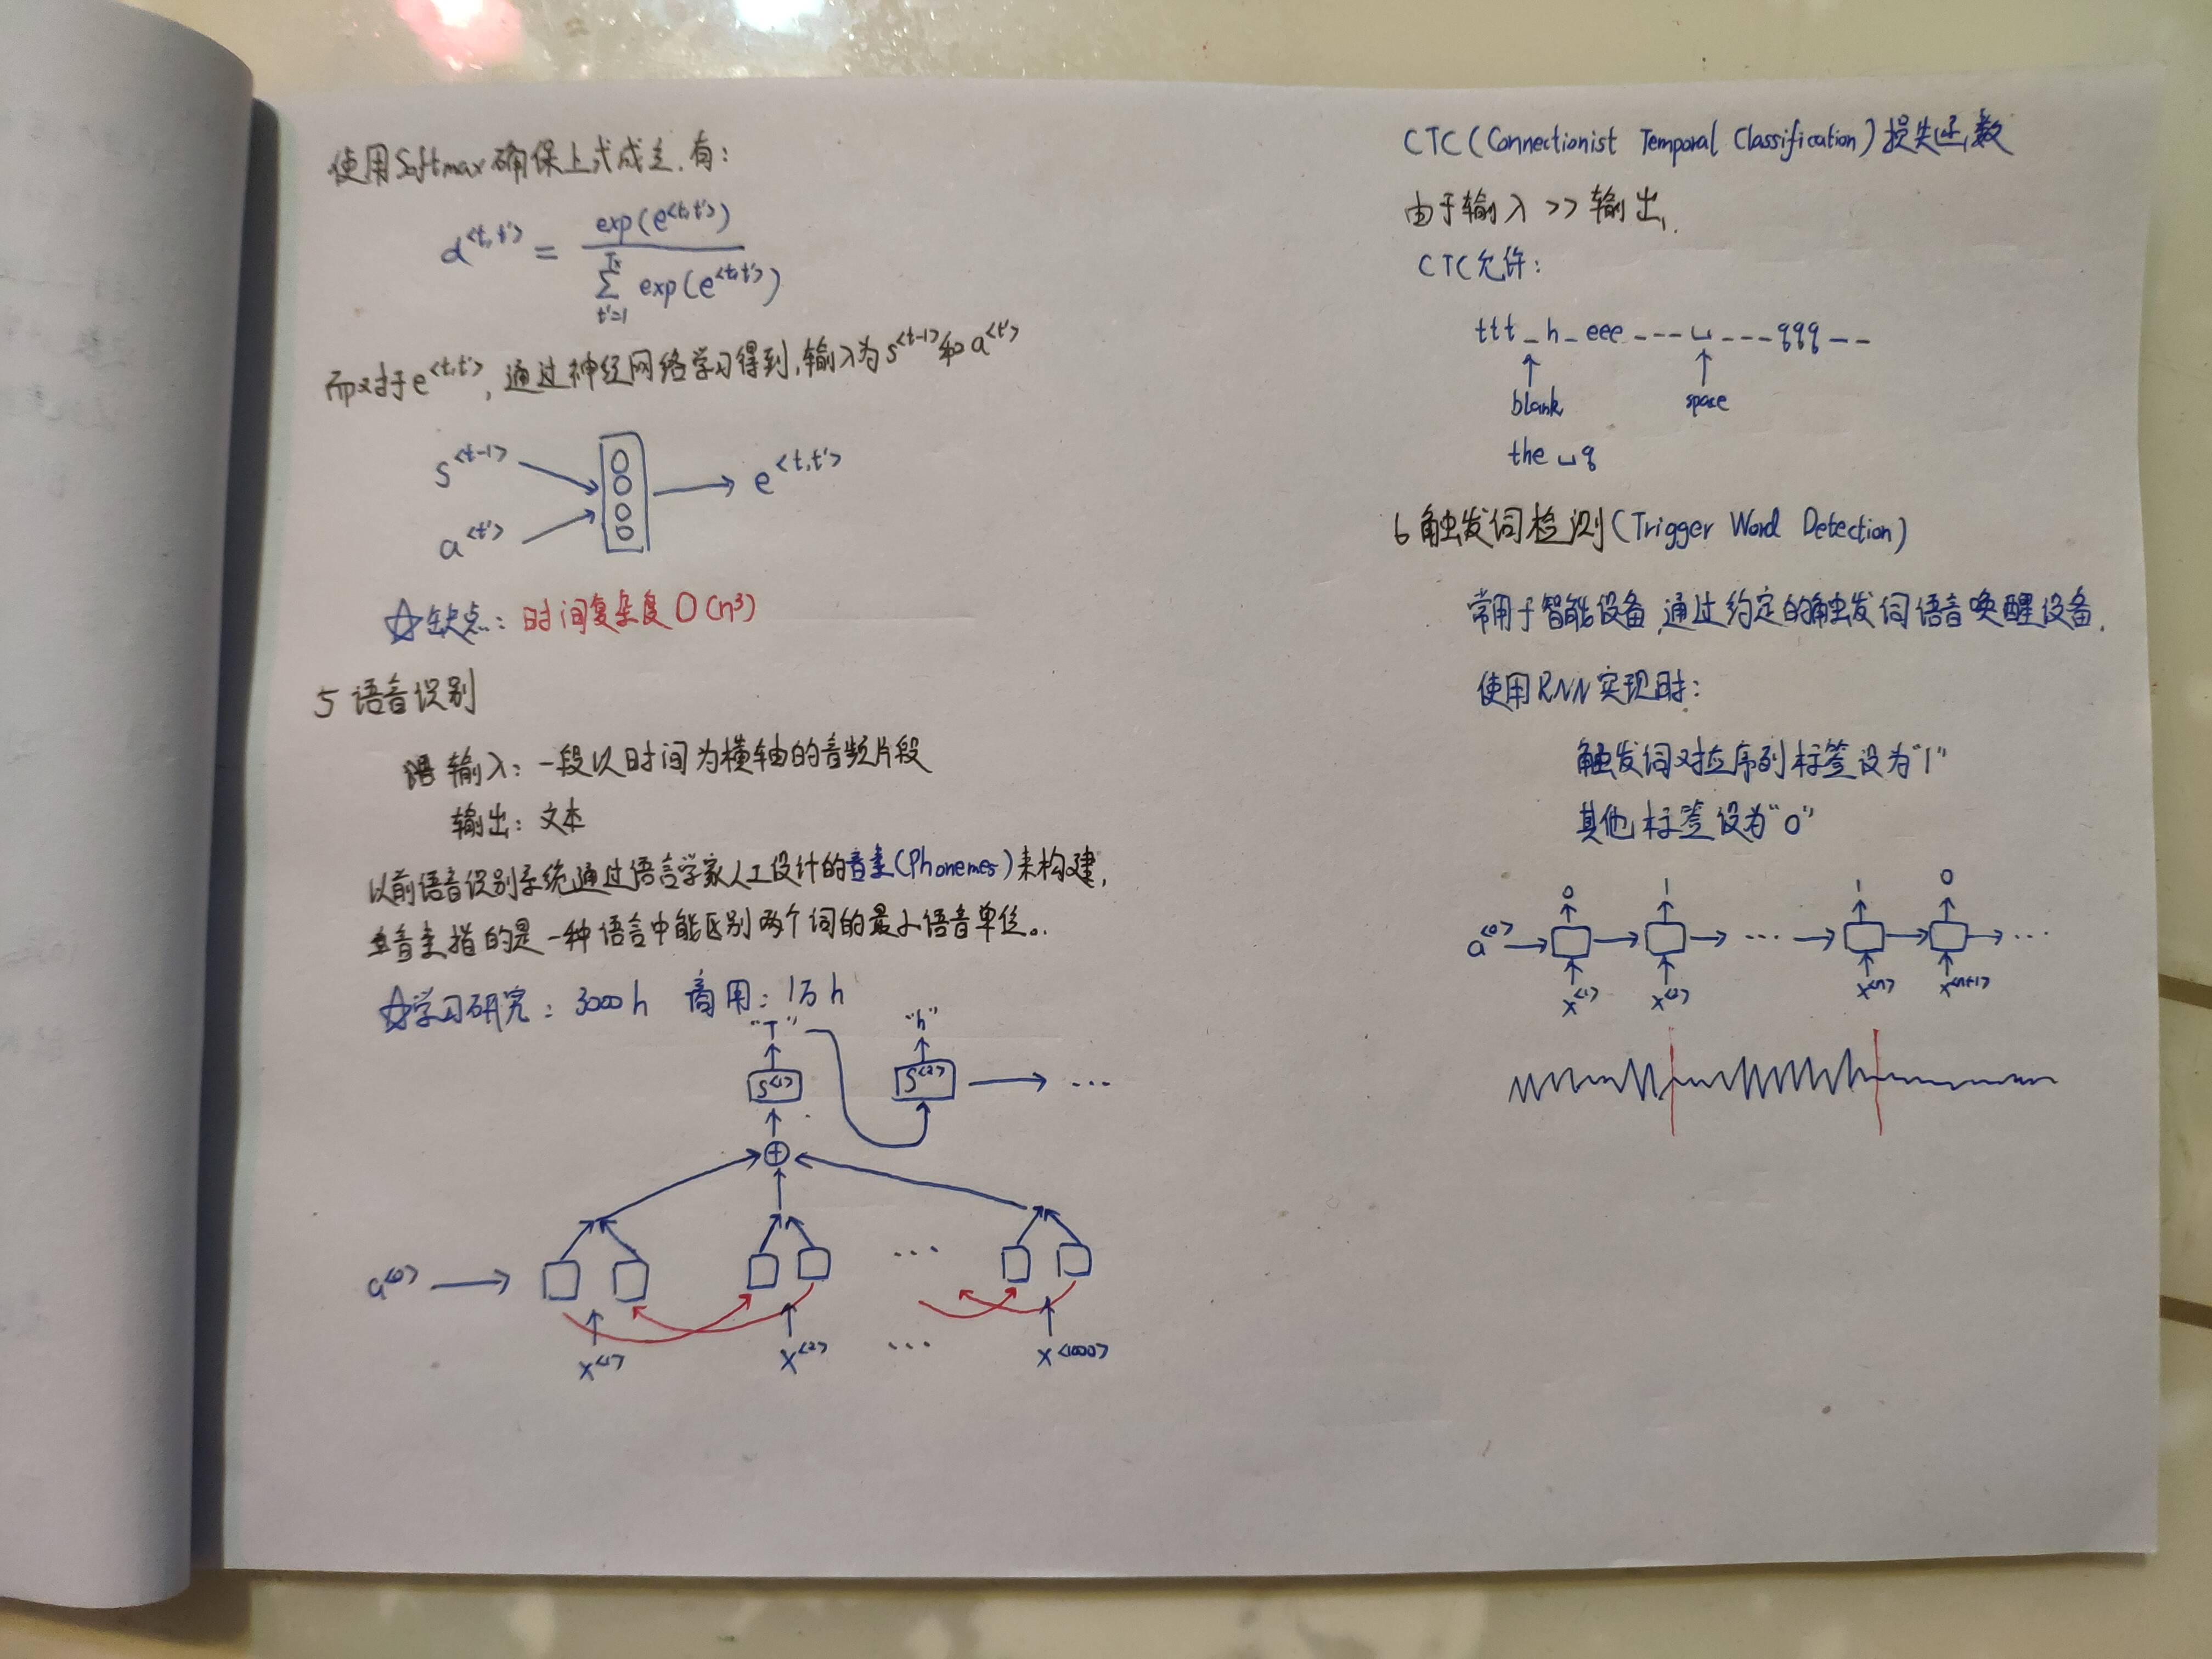 使用Softmax确保上式成立.有:
α<t,t'> = exp(e<t,t'>) / Σ_{t'=1}^{Tx} exp(e<t,t'>)
而对于e<t,t'>, 通过神经网络学习得到,输入为s<t-1>和a<t'>
s<t-1>
a<t'>
e<t,t'>
☆缺点: 时间复杂度O(n³)
5 语音识别
输入: 一段以时间为横轴的音频片段
输出: 文本
以前语音识别系统通过语言学家人工设计的音素(Phonemes)来构建,
音素指的是一种语言中能区别两个词的最小语音单位。
☆学习研究: 3000h 商用: 1万h
"T" "h"
S<1> S<2> ...
+
a<0> ...
x<1> x<2> ... x<1000>
CTC(Connectionist Temporal Classification)损失函数
由于输入 >> 输出,
CTC允许:
ttt_h_eee---␣---qqq--
blank space
the␣q
6 触发词检测(Trigger Word Detection)
常用于智能设备,通过约定的触发词语音唤醒设备.
使用RNN实现时:
触发词对应序列标签设为"1"
其他标签设为"0"
0 1 1 0
a<0> ... ...
x<1> x<2> x<n> x<n+1>